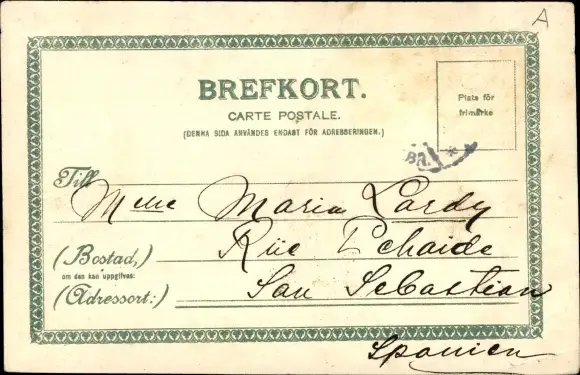 A
BREFKORT.
CARTE POSTALE.
(DENNA SIDA ANVÄNDES ENDAST FÖR ADRESSERINGEN.)
Plats för
frimärke
BR.
Till
Melle Maria Lardy
Rüe Echaide
(Bostad,)
om den kan uppgifvas:
San Sebastian
(Adressort:)
Spanien